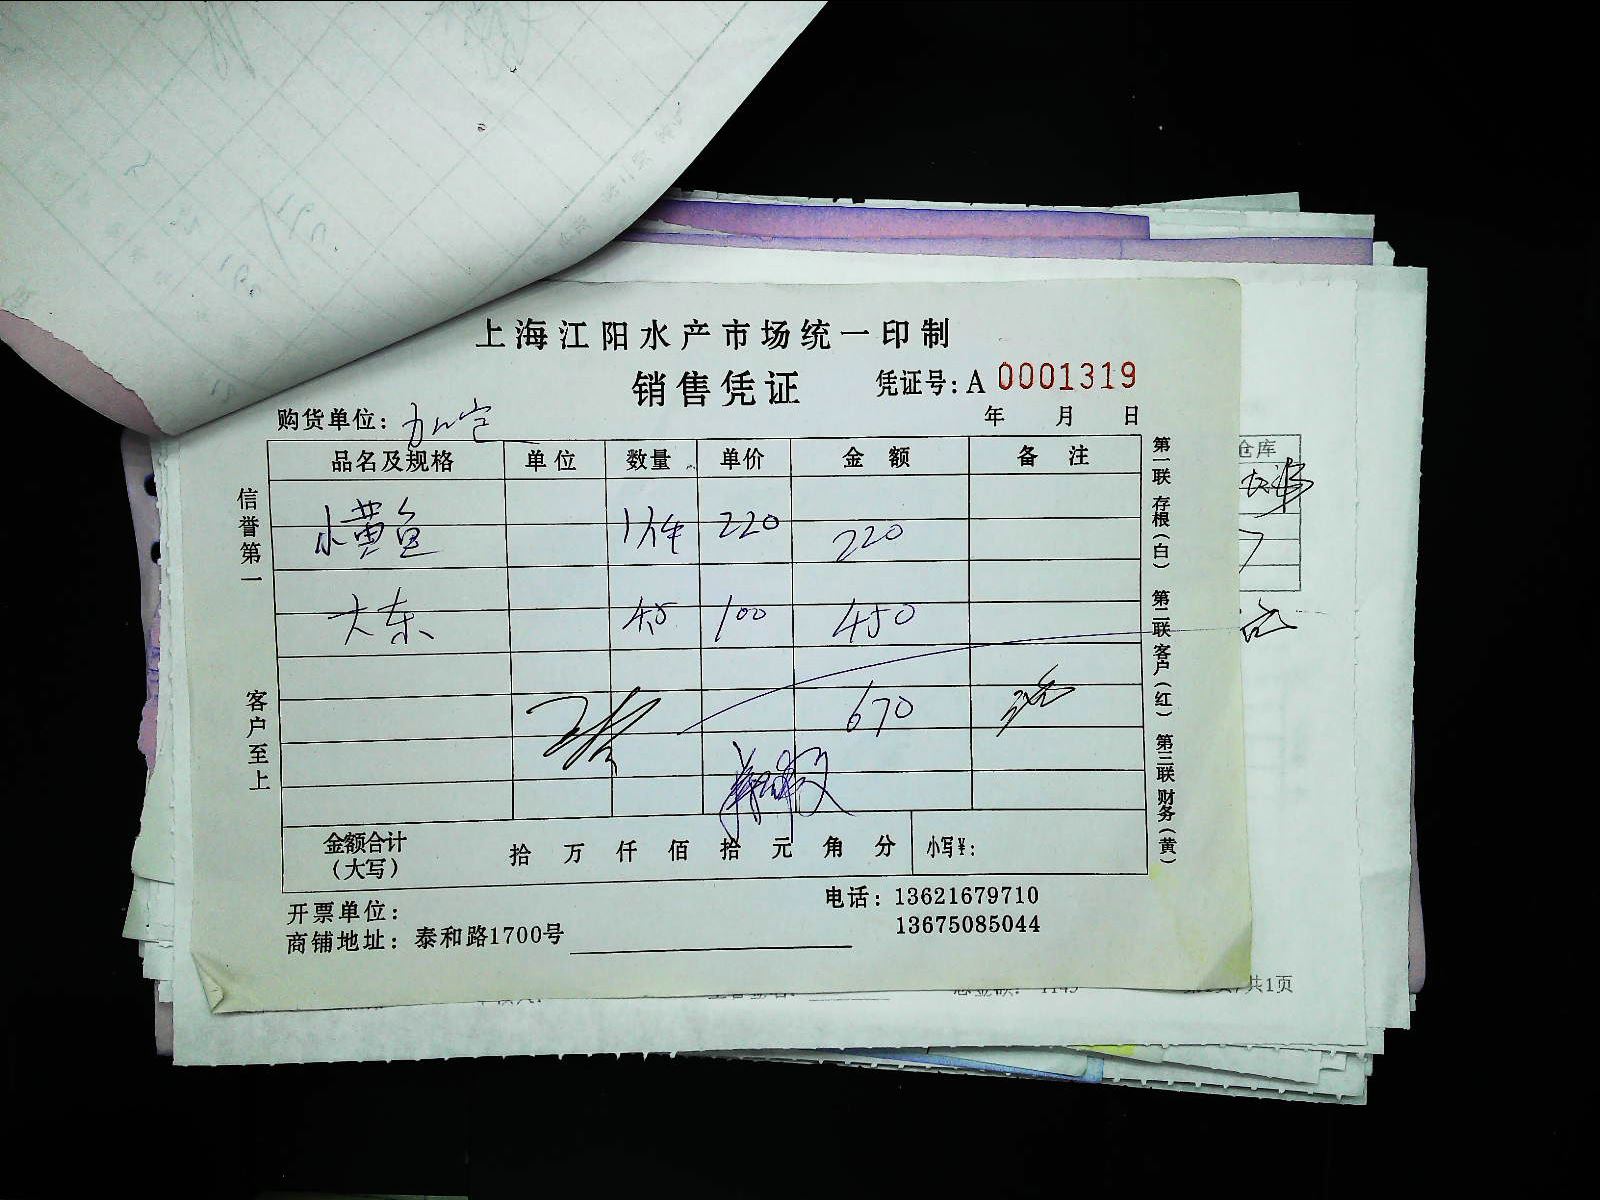 上海江阳水产市场统一印制
销售凭证 凭证号：A 0001319
购货单位：加定 年 月 日
品名及规格 单位 数量 单价 金额 备注
小黄鱼 1件 220 220
大东 4.5 100 450
670
金额合计（大写） 拾 万 仟 佰 拾 元 角 分 小写¥：
开票单位： 电话：13621679710
13675085044
商铺地址：泰和路1700号
信誉第一
客户至上
第一联 存根（白） 第二联 客户（红） 第三联 财务（黄）
仓库
共1页